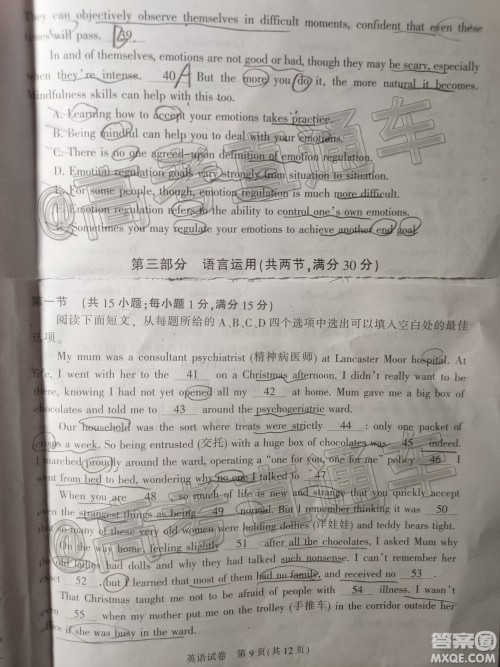 They can objectively observe themselves in difficult moments, confident that even these
times will pass. 39
In and of themselves, emotions are not good or bad, though they may be scary, especially
when they're intense. 40 A But the more you do it, the more natural it becomes.
Mindfulness skills can help with this too.
A. Learning how to accept your emotions takes practice.
B. Being mindful can help you to deal with your emotions.
C. There is no one agreed-upon definition of emotion regulation.
D. Emotion regulation goals vary strongly from situation to situation.
E. For some people, though, emotion regulation is much more difficult.
Emotion regulation refers to the ability to control one's own emotions.
Sometimes you may regulate your emotions to achieve another end goal.
第三部分 语言运用(共两节,满分30分)
第一节 (共15小题;每小题1分,满分15分)
阅读下面短文,从每题所给的A、B、C、D四个选项中选出可以填入空白处的最佳
选项。
My mum was a consultant psychiatrist (精神病医师) at Lancaster Moor hospital. At
I went with her to the 41 on a Christmas afternoon. I didn't really want to be
there, knowing I had not yet opened all my 42 at home. Mum gave me a big box of
chocolates and told me to 43 around the psychogeriatric ward.
Our household was the sort where treats were strictly 44 : only one packet of
crisps a week. So being entrusted (交托) with a huge box of chocolates was 45 indeed.
I marched proudly around the ward, operating a "one for you, one for me" policy 46 I
went from bed to bed, wondering why no one I talked to 47
When you are 48 , so much of life is new and strange that you quickly accept
even the strangest things as being 49 normal. But I remember thinking it was 50
that so many of these very old women were holding dollies (洋娃娃) and teddy bears tight.
On the way home, feeling slightly 51 after all the chocolates, I asked Mum why
the old ladies had dolls and why they had talked such nonsense. I can't remember her
exact 52 , but I learned that most of them had no family, and received no 53 .
That Christmas taught me not to be afraid of people with 54 illness. I wasn't
even 55 when my mother put me on the trolley (手推车) in the corridor outside her
office if she was busy in the ward.
英语试卷 第9页(共12页)
@高考直通车
@高考直通车
@高考直通车
答案圈
MXQE.COM